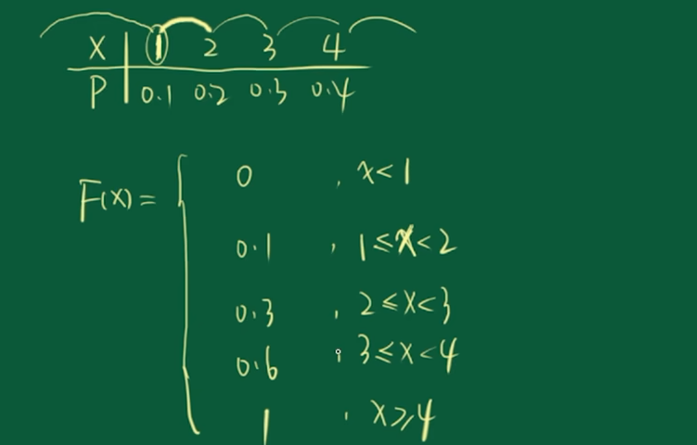 X 1 2 3 4
P 0.1 0.2 0.3 0.4
F(x)= { 0 , x<1
0.1 , 1≤x<2
0.3 , 2≤x<3
0.6 , 3≤x<4
1 , x≥4